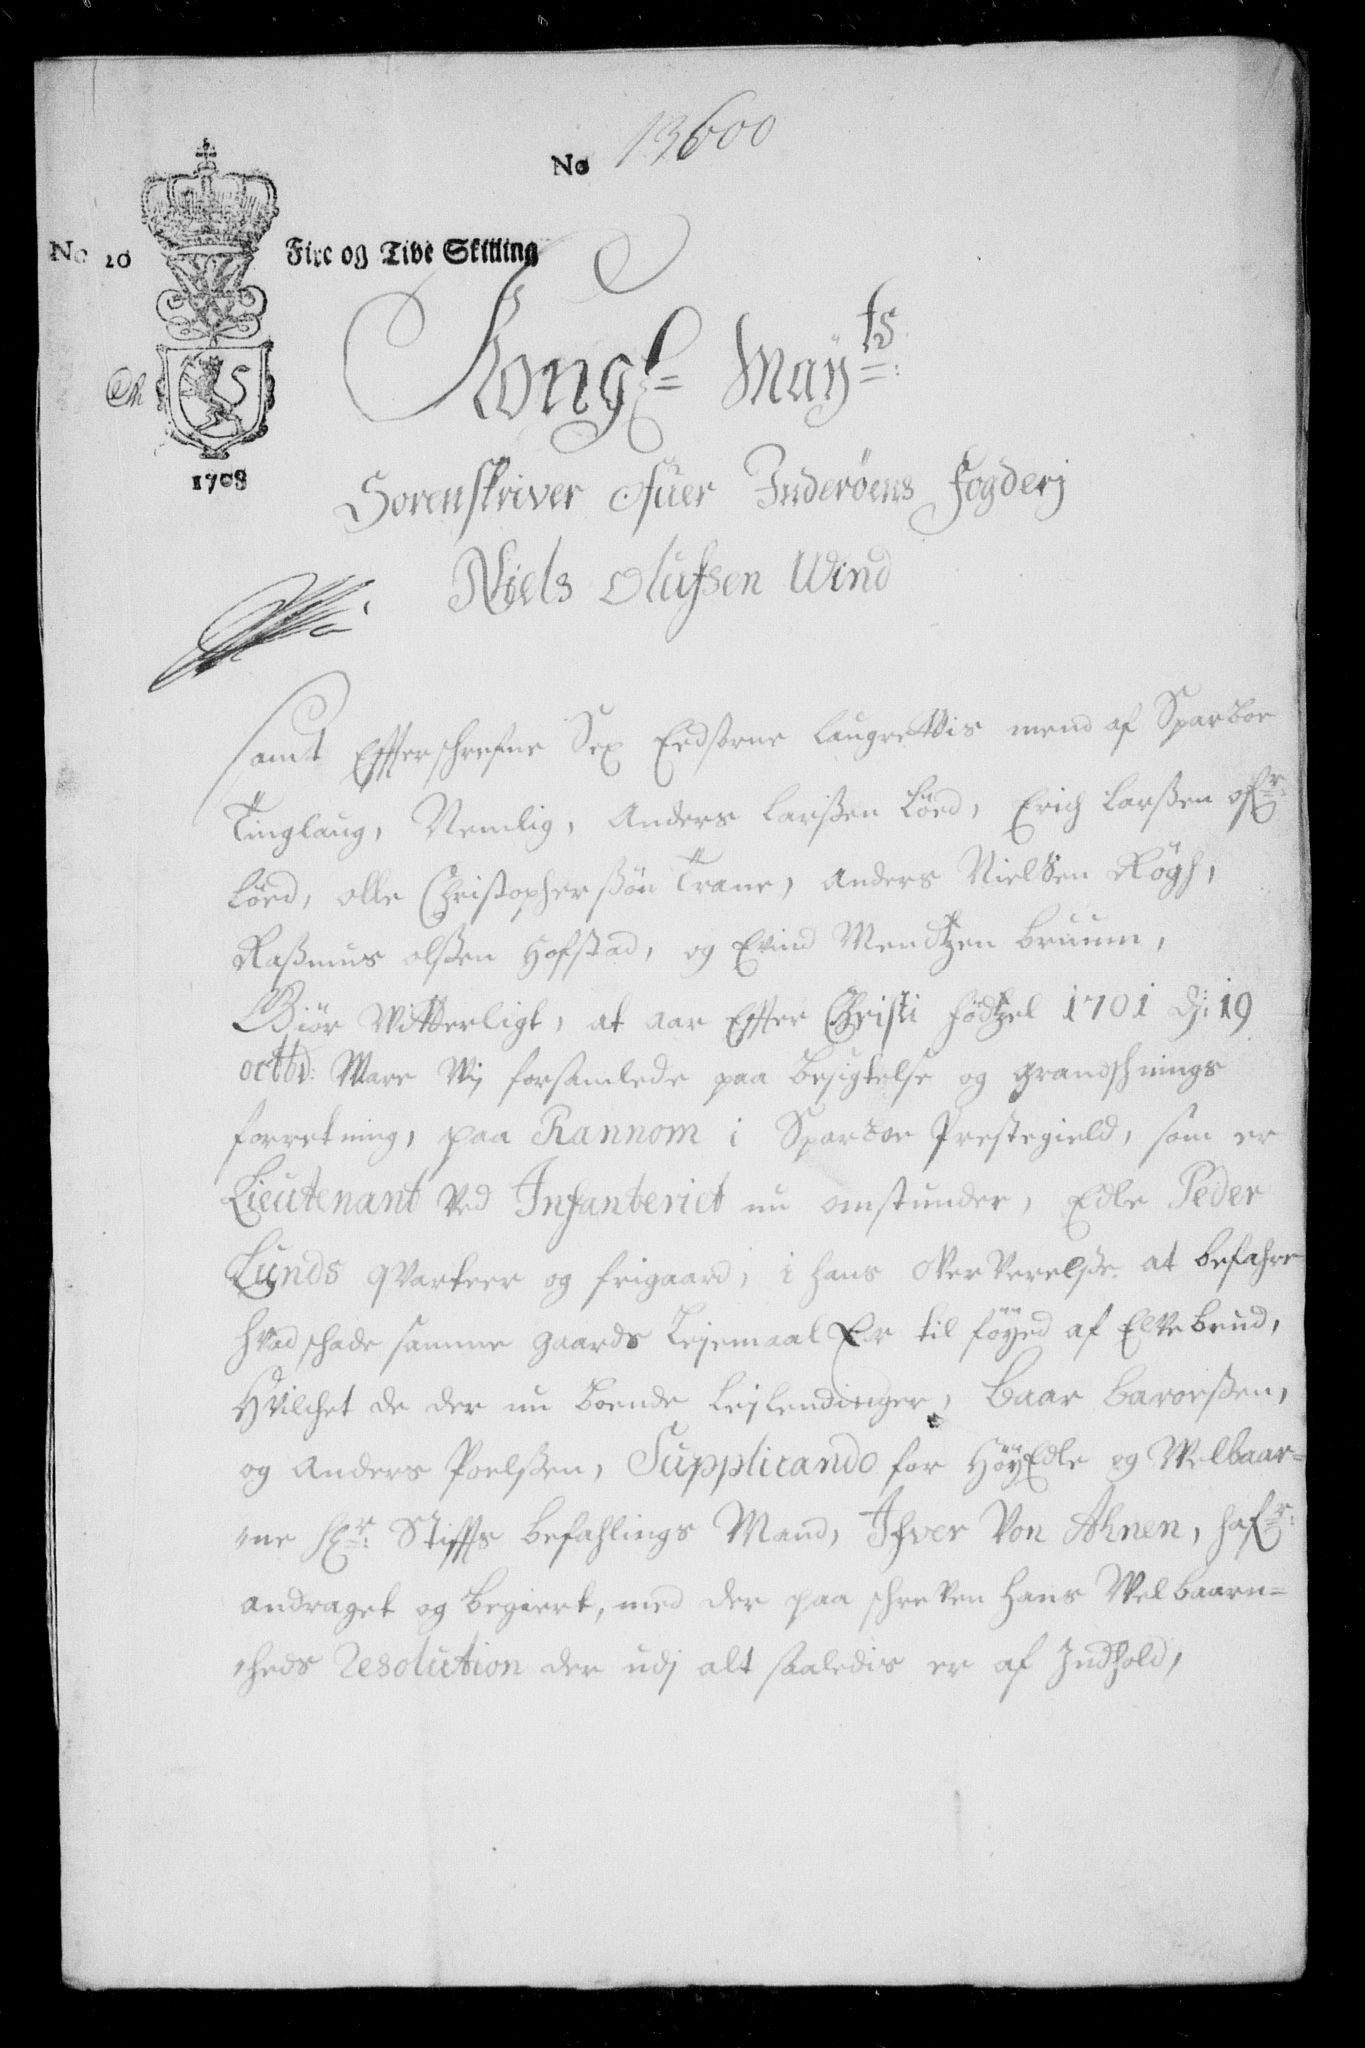 No 13600
No 20 Fire og Tive Skilling
Kongl= May=ts:
1708
Sorenskriver ofuer Inderøens Fogderj
Niels Olufsen Wind
Samt Effterschrefne Sex Eedsorne Laugrettis mend af Sparboe
Tinglaug, Nemlig, Anders Larßen Löed, Erich Larßen
Löed, Olle Christophersßön Trane, Anders Nielßen Røgh,
Raßmus Olßen Hofstad, og Evind Mendtzen Bruum,
Giör Witterligt, at aar Effter Christi Födtzel 1701 dj: 19
octbr: Ware Wj forsamlede paa Besigtelse og grandschnings
forretning, paa Rannom i Sparboe Prestegield, som er
Lieutenant Ved Infanteriet nu omstunder, Edle Peder
Lunds qvarteer og frigaard, i hans Oververelße at befahre
hvad schade samme gaards Lejemaal Er til föyed af Elvebrud,
Hvilchet de der nu boende Lejlendinger, Baar Baroesßen,
og Anders Poelßen, Supplicando for HöyEdle og Welbaar=
=ne Hr: Stiffts Befahlings Mand, Ifver Von Ahnen, hafr:
andraget og Begiert, med der paa schreven Hans Welbaarn=
=heds Resolution der udj alt saaledis er af Indhold,